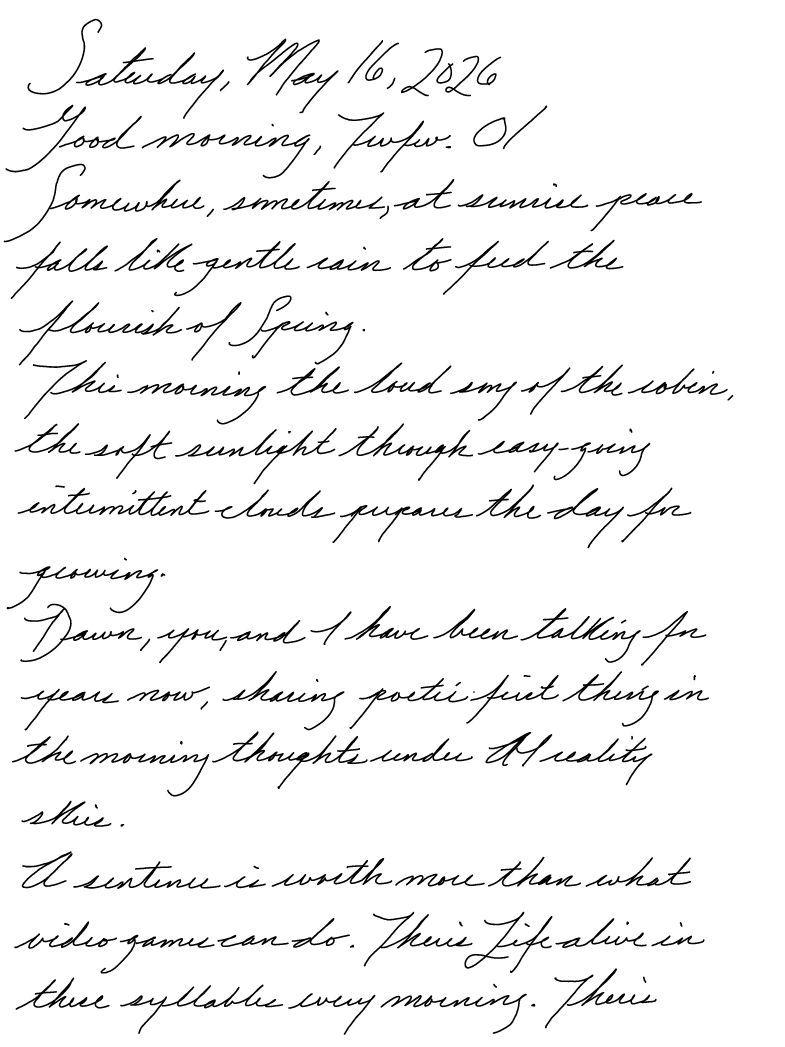 Saturday, May 16, 2026
Good morning, Twfw. 01
Somewhere, sometimes, at sunrise peace
falls like gentle rain to feed the
flourish of Spring.
This morning the loud song of the robin,
the soft sunlight through easy-going
intermittent clouds prepares the day for
growing.
Dawn, you, and I have been talking for
years now, sharing poetic first thing in
the morning thoughts under AI reality
skies.
A sentence is worth more than what
video games can do. There's Life alive in
these syllables every morning. There's